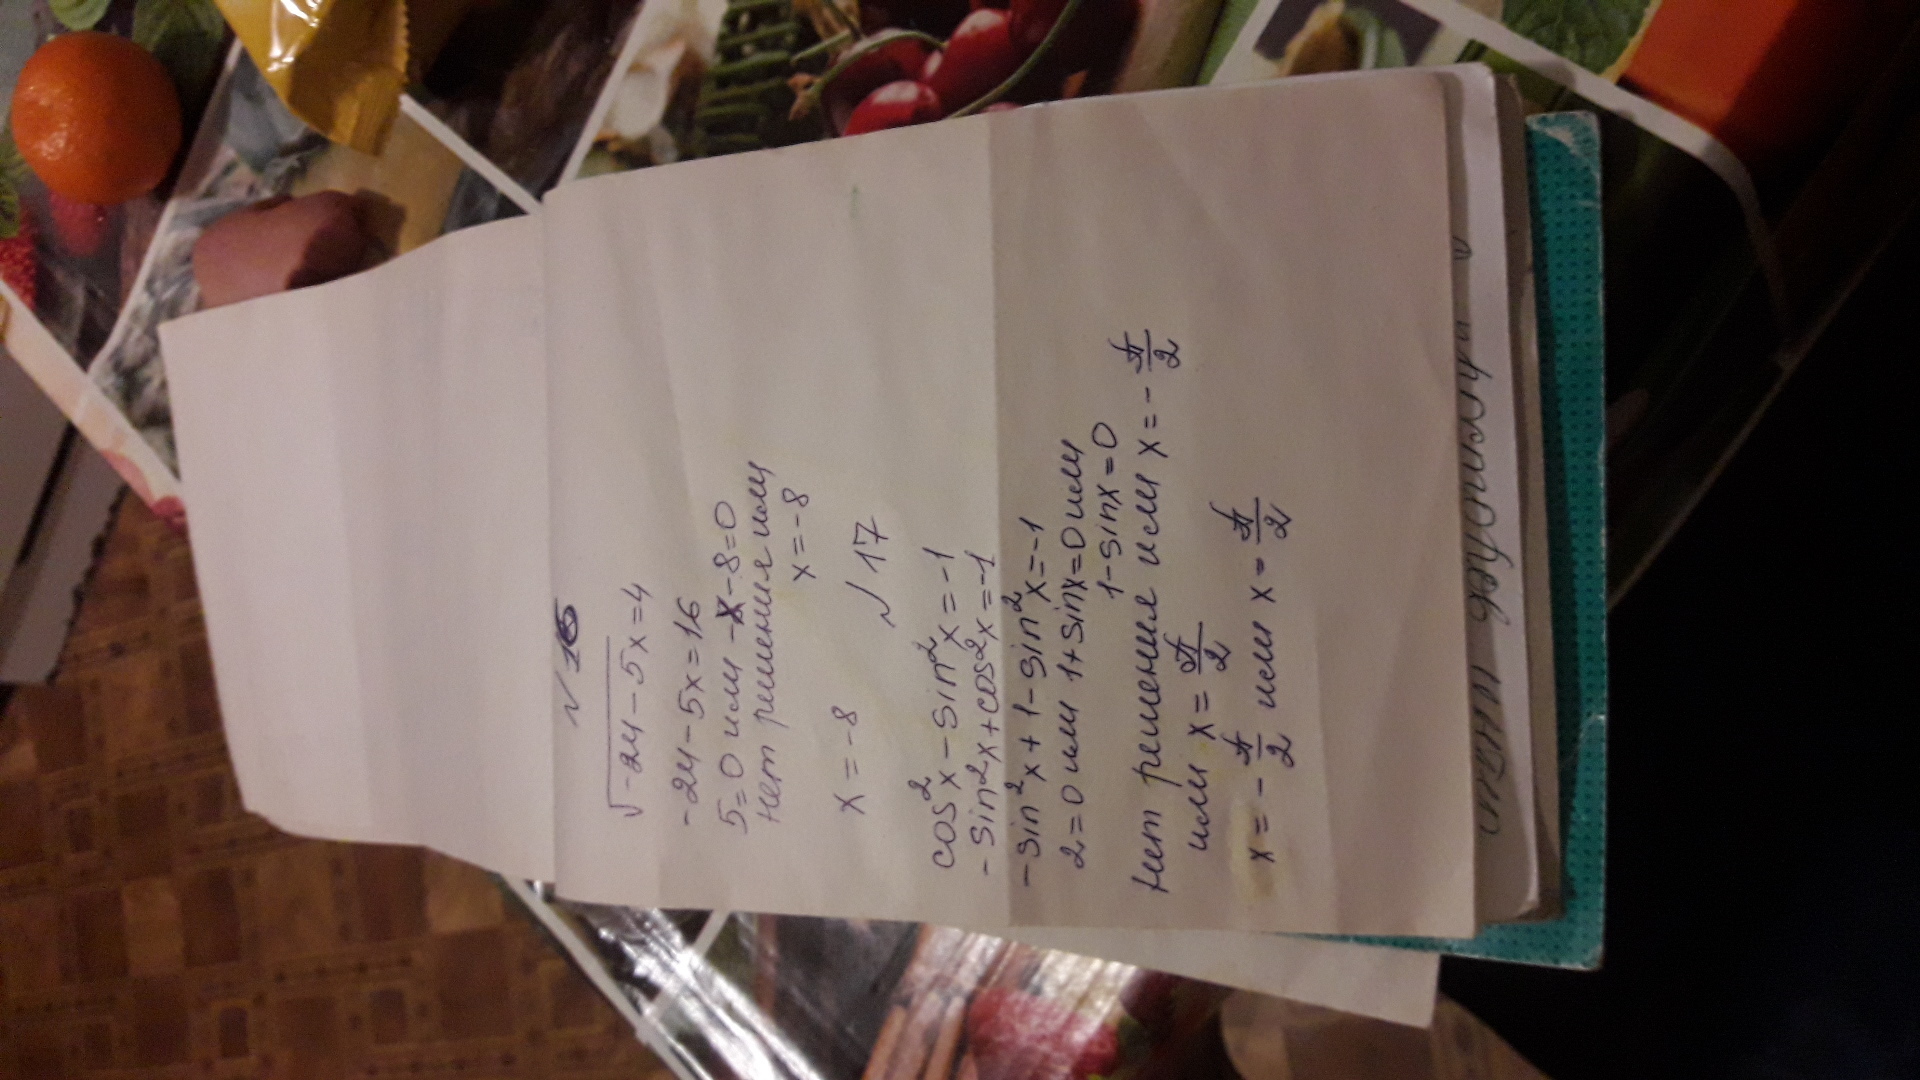 √16
√-24-5x=4
-24-5x=16
5=0 или -x-8=0
нет решения или
x=-8
x=-8
√17
cos²x-sin²x=-1
-sin²x+cos²x=-1
-sin²x+1-sin²x=-1
2=0 или 1+sinx=0 или
1-sinx=0
нет решения или x=-π/2
или x=π/2
x=-π/2 или x=π/2